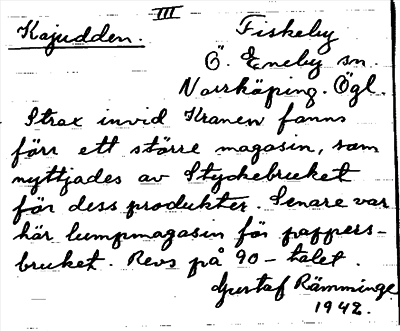 III
Kajudden.
Fiskeby
Ö. Eneby sn.
Norrköping. Ögl.
Strax invid Kranen fanns
förr ett större magasin, som
nyttjades av Styckebruket
för dess produkter. Senare var
här lumpmagasin för pappers-
bruket. Revs på 90-talet.
Gustaf Rämminge
1942.